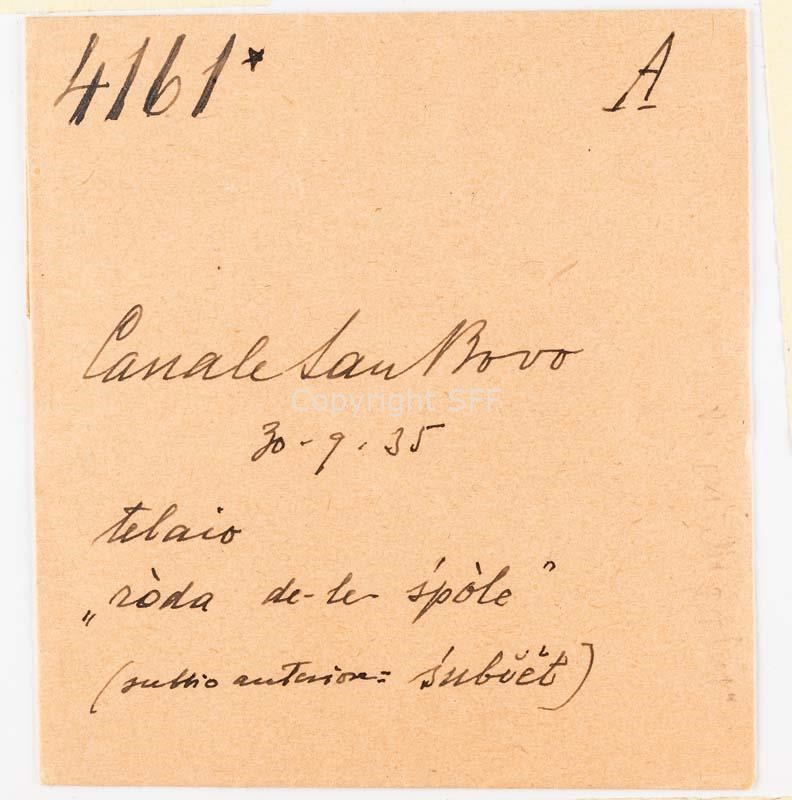 4161* A
Canale San Bovo
Copyright SFF
30-9.35
telaio
„ròda de-le śpòle”
(subbio anteriore= śubi̯ĕt)